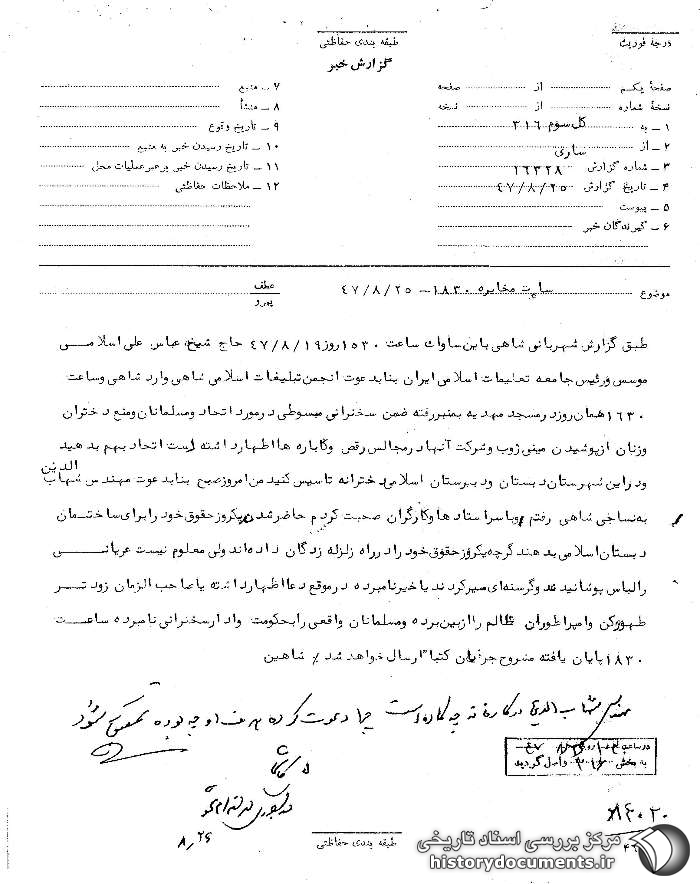 درجه فوریت
طبقه بندی حفاظتی
گزارش خبر
صفحهٔ یکم از صفحه
نسخهٔ شماره از نسخه
۱ ـ به کل سوم ۳۱۶
۲ ـ از ساری
۳ ـ شماره گزارش ۱۶۳۲۸
۴ ـ تاریخ گزارش ۴۷/۸/۲۵
۵ ـ پیوست
۶ ـ گیرندگان خبر
۷ ـ منبع
۸ ـ منشأ
۹ ـ تاریخ وقوع
۱۰ ـ تاریخ رسیدن خبر به منبع
۱۱ ـ تاریخ رسیدن خبر برهبر عملیات محل
۱۲ ـ ملاحظات حفاظتی
موضوع ساعت مخابره ۱۸۳۰ - ۴۷/۸/۲۵
عطف
پیرو
طبق گزارش شهربانی شاهی باین ساواک ساعت ۱۵۳۰ روز ۴۷/۸/۱۹ حاج شیخ عباس علی اسلامی
موسس ورئیس جامعه تعلیمات اسلامی ایران بنابدعوت انجمن تبلیغات اسلامی شاهی وارد شاهی وساعت
۱۶۳۰ همان روزدرمسجد مهدیه بمنبررفته ضمن سخنرانی مبسوطی درمورد اتحاد ومسلمانان ومنع دختران
وزنان ازپوشیدن مینی ژوب وشرکت آنهادرمجالس رقص وکاباره ها اظهارداشته است اتحاد بهم بدهید
ودراین شهرستان دبستان ودبیرستان اسلامی دخترانه تاسیس کنید من امروزصبح بنابدعوت مهندس شهاب الدین
به نساجی شاهی رفتم وباسراستادها وکارگران صحبت کردم حاضرشدند یکروزحقوق خود رابرای ساختمان
دبستان اسلامی بدهند گرچه یکروزحقوق خود رادرراه زلزله زدگان داده اند ولی معلوم نیست عریانی
رالباس پوشانیدند وگرسنه ای سیرکردند یاخیرنامبرده درموقع دعا اظهارداشته یاصاحب الزمان زودتر
ظهورکن وامپراطوران ظالم راازبین برده ومسلمانان واقعی رابحکومت وادارسخنرانی نامبرده ساعت
۱۸۳۰ پایان یافته مشروح جریان کتبا" ارسال خواهد شد / شاهین
مهندس شهاب الدین در کارخانه چه کاره است چرا دعوت کرده هدف او چه بوده تحقیق شود
به بخش ۳۱۶ واصل گردید
۸/۲۶
طبقه بندی حفاظتی
مرکز بررسی اسناد تاریخی
historydocuments.ir